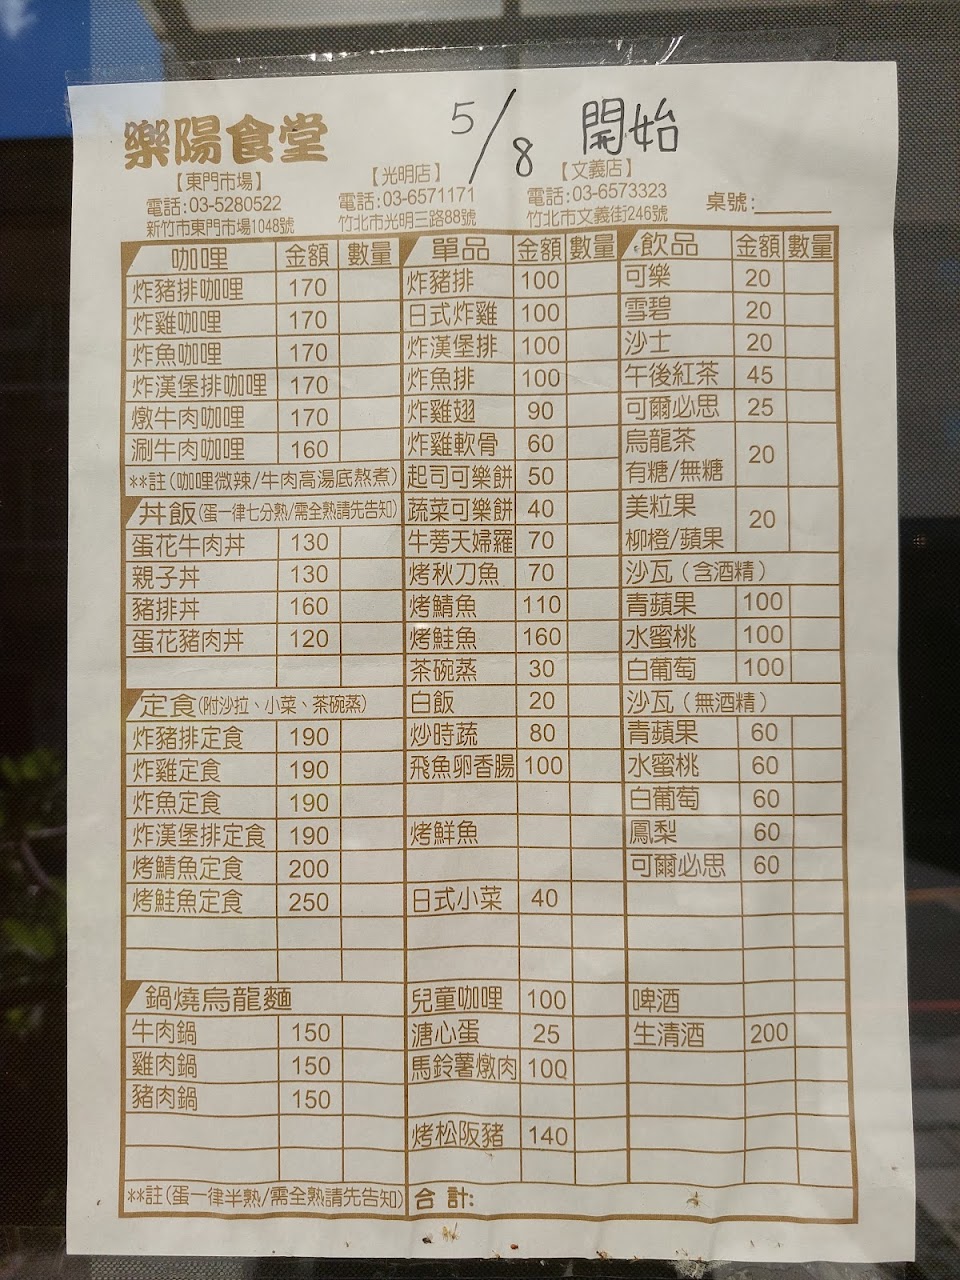 5/8 開始
樂陽食堂
【東門市場】
電話:03-5280522
新竹市東門市場1048號
【光明店】
電話:03-6571171
竹北市光明三路88號
【文義店】
電話:03-6573323
竹北市文義街246號
桌號:
咖哩 金額 數量
炸豬排咖哩 170
炸雞咖哩 170
炸魚咖哩 170
炸漢堡排咖哩 170
燉牛肉咖哩 170
涮牛肉咖哩 160
**註(咖哩微辣/牛肉高湯底熬煮)
丼飯(蛋一律七分熟/需全熟請先告知)
蛋花牛肉丼 130
親子丼 130
豬排丼 160
蛋花豬肉丼 120
定食(附沙拉、小菜、茶碗蒸)
炸豬排定食 190
炸雞定食 190
炸魚定食 190
炸漢堡排定食 190
烤鯖魚定食 200
烤鮭魚定食 250
鍋燒烏龍麵
牛肉鍋 150
雞肉鍋 150
豬肉鍋 150
**註(蛋一律半熟/需全熟請先告知)
單品 金額 數量
炸豬排 100
日式炸雞 100
炸漢堡排 100
炸魚排 100
炸雞翅 90
炸雞軟骨 60
起司可樂餅 50
蔬菜可樂餅 40
牛蒡天婦羅 70
烤秋刀魚 70
烤鯖魚 110
烤鮭魚 160
茶碗蒸 30
白飯 20
炒時蔬 80
飛魚卵香腸 100
烤鮮魚
日式小菜 40
兒童咖哩 100
溏心蛋 25
馬鈴薯燉肉 100
烤松阪豬 140
合計:
飲品 金額 數量
可樂 20
雪碧 20
沙士 20
午後紅茶 45
可爾必思 25
烏龍茶
有糖/無糖 20
美粒果
柳橙/蘋果 20
沙瓦(含酒精)
青蘋果 100
水蜜桃 100
白葡萄 100
沙瓦(無酒精)
青蘋果 60
水蜜桃 60
白葡萄 60
鳳梨 60
可爾必思 60
啤酒
生清酒 200